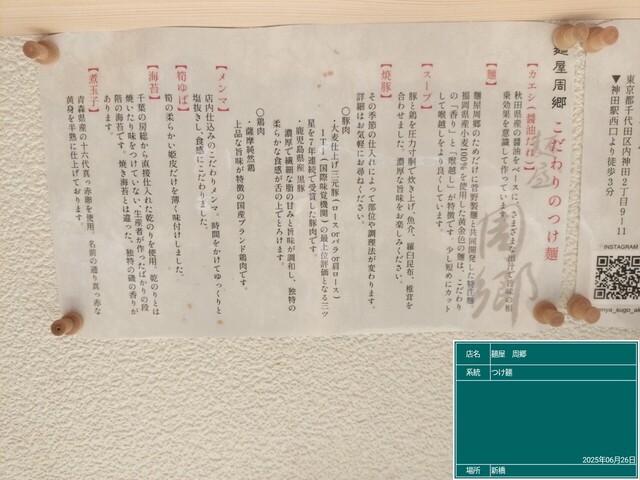 東京都千代田区内神田2丁目9-11
▼神田駅西口より徒歩3分
INSTAGRAM
麺屋周郷 こだわりのつけ麺
【カエシ（醤油だれ）】
秋田県産の醤油をベースに、さまざまな出汁で旨味の相
乗効果を意識して作っています。
【麺】
麺屋周郷のためだけに菅野製麺と共同開発した特注麺。
福岡県産小麦100％を使用した黄金色の麺は、こだわり
の「香り」と「喉越し」が特徴です。少し短めにカット
して喉越しをより良くしています。
【スープ】
豚と鶏を圧力寸胴で炊き上げ、魚介、羅臼昆布、椎茸を
合わせました。濃厚な旨味をお楽しみください。
【焼豚】
その季節の仕入れによって部位や調理法が変わります。
詳細はお気軽にお尋ねください。
◎豚肉
・大麦仕上げ三元豚（ロースorバラor肩ロース）
iTi（国際味覚機関）の最上位評価となる三ツ
星を7年連続で受賞した豚肉です。
・鹿児島県産 黒豚
濃厚で繊細な脂の甘みと旨味が調和し、独特の
柔らかな食感が舌の上でとろけます。
◎鶏肉
・薩摩純然鶏
上品な旨味が特徴の国産ブランド鶏肉です。
【メンマ】
店内仕込みのこだわりメンマ。時間をかけてゆっくりと
塩抜きし、食感にこだわりました。
【筍ゆば】
筍の柔らかい姫皮だけを薄く味付けしました。
【海苔】
千葉の房総から直接仕入れた乾のりを使用。乾のりとは
焼いたり味をつけていない、生産者が作ったばかりの段
階の海苔です。焼き海苔とは違った、独特の磯の香りが
あります。
【煮玉子】
青森県産の十六代真っ赤卵を使用。名前の通り真っ赤な
黄身を半熟に仕上げております。
麺屋
周郷
店名 麺屋 周郷
系統 つけ麺
2025年06月26日
場所 新橋